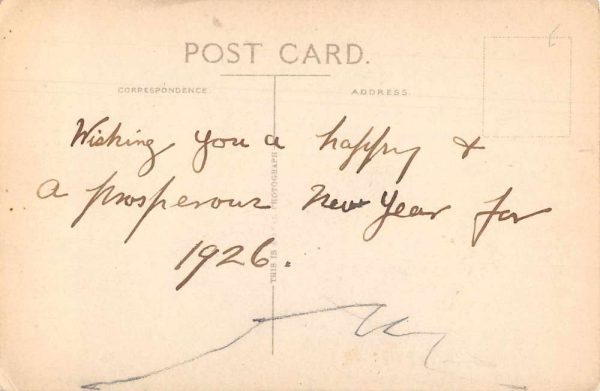 POST CARD.
CORRESPONDENCE
ADDRESS.
Wishing you a happy &
a prosperous New Year for
1926.
THIS IS A PHOTOGRAPH